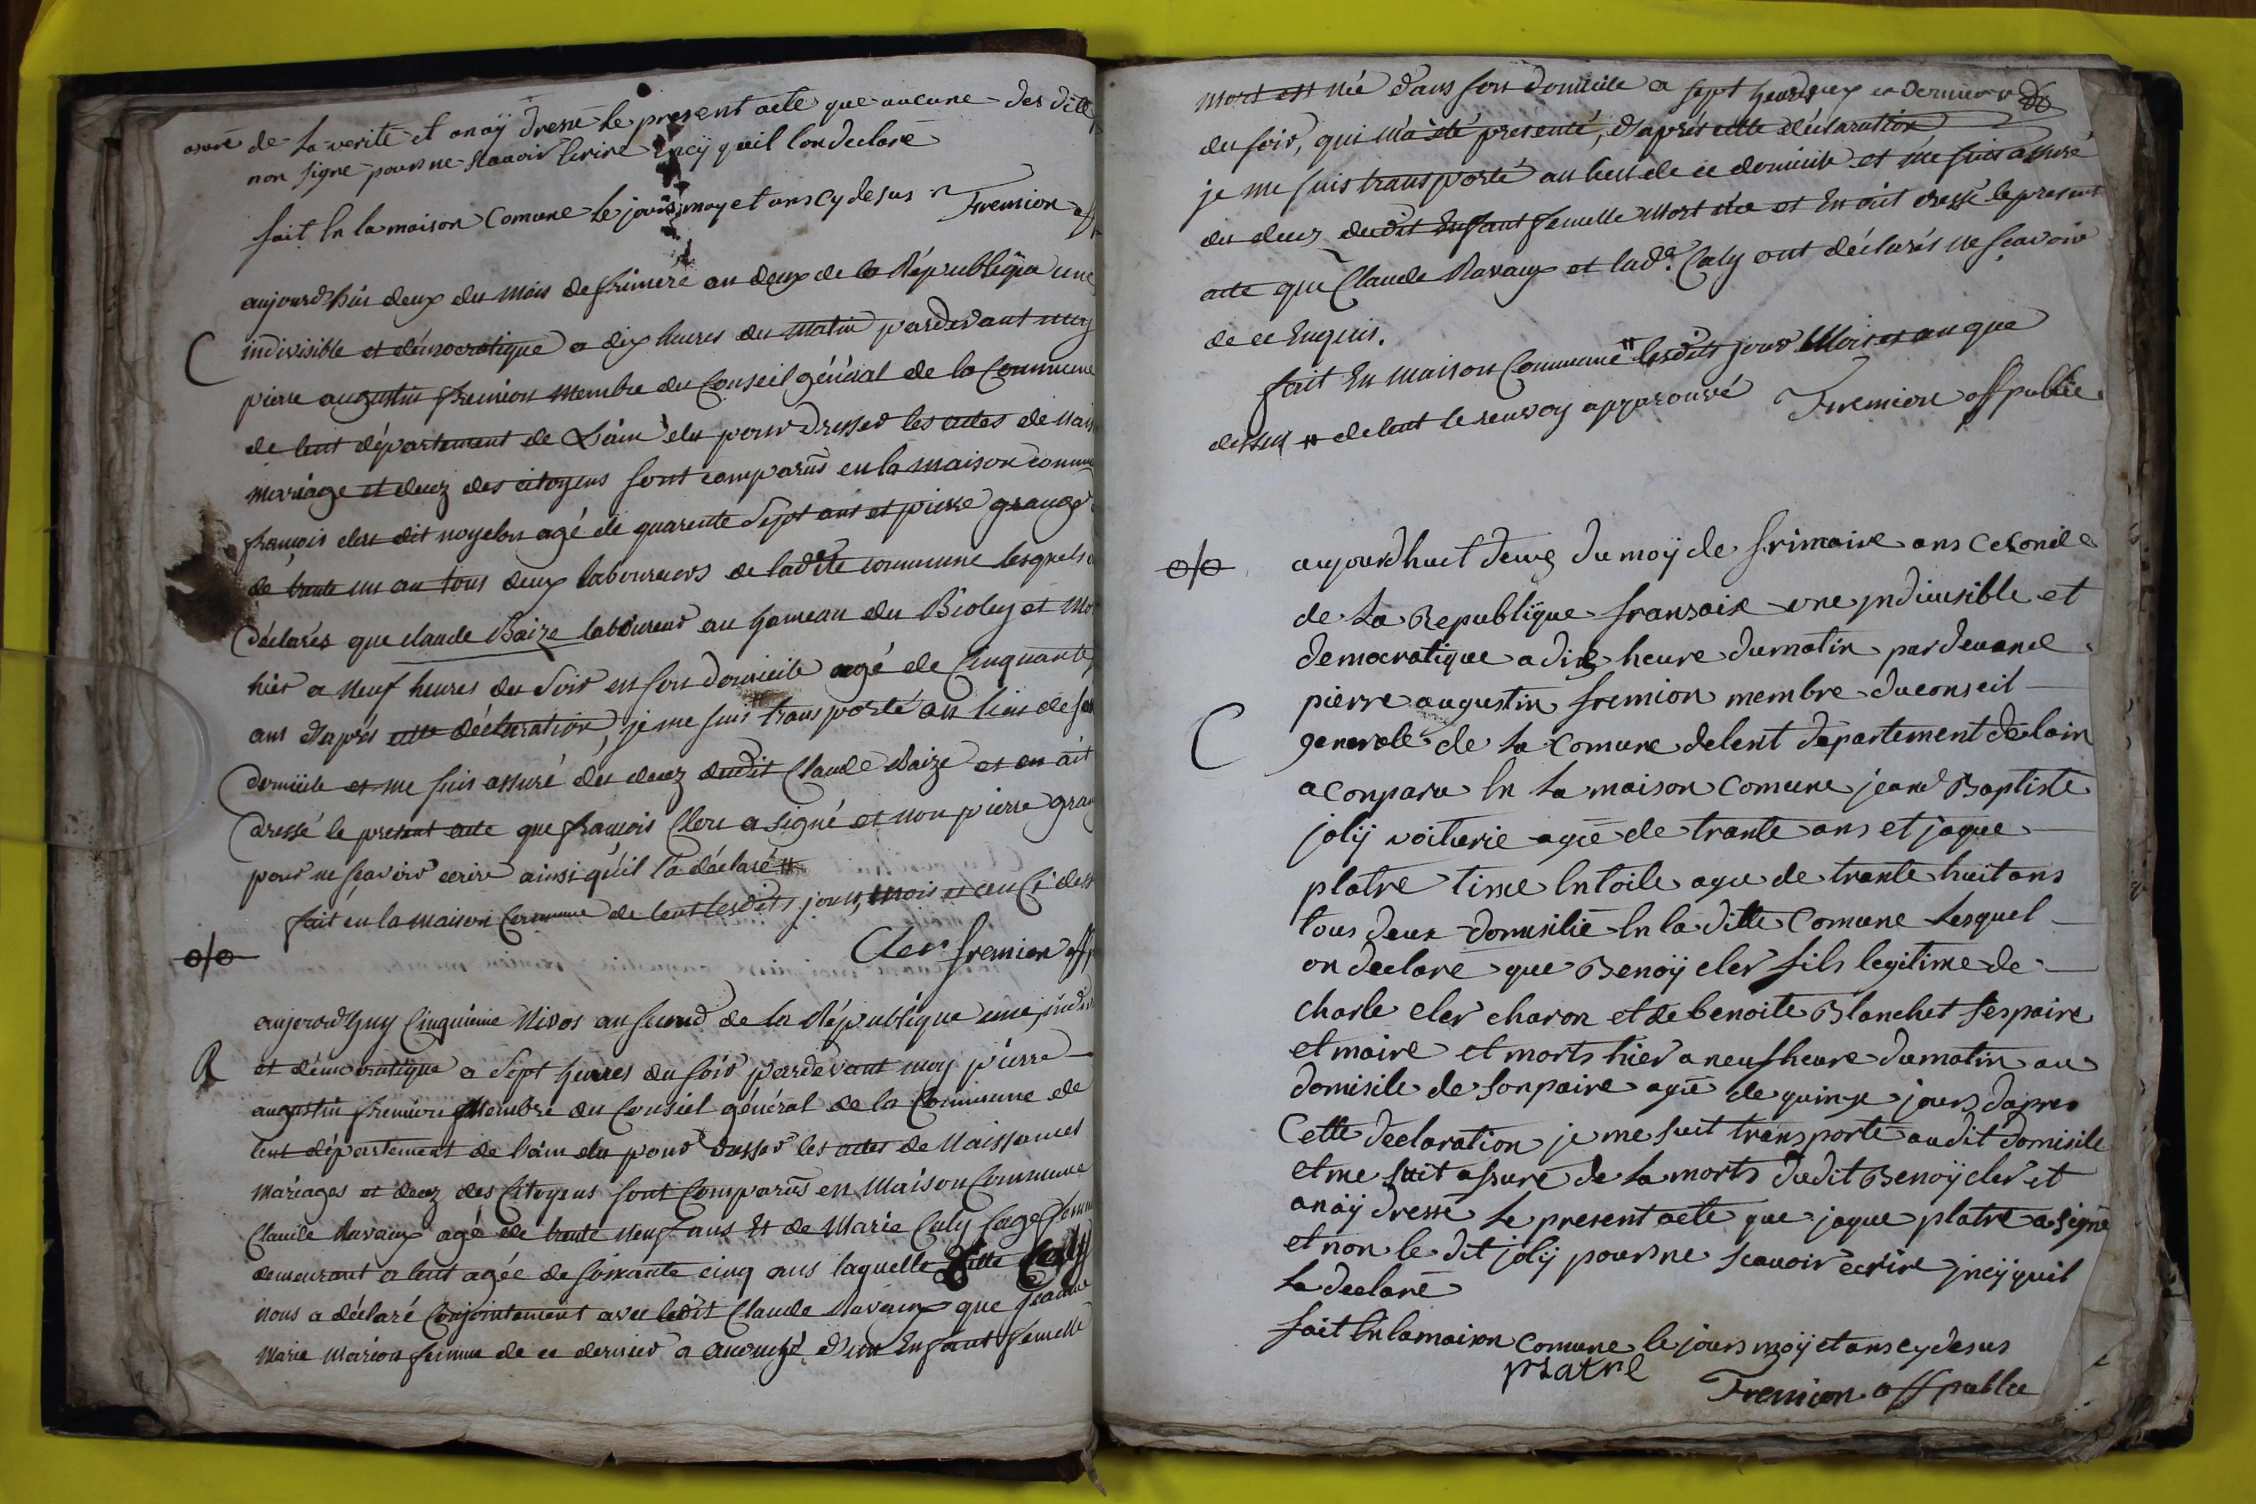 asuré de la verité et anaÿ dressé le present acte que aucune des ditte
non signe pour ne scavoir Ecrire incÿ quil lon declaré
fait En la maison Comune le jours, moy et ans cy desus Fremion off
aujourd'hui deux du mois de frimere an deux de la République une
C
indivisible et démocratique a dix heures du matin pardevant moy
pierre augustin fremion Membre du Conseil général de la Commune
de lent département de L'ain élu pour dresser les actes de nais
mariage et decez des citoyens sont comparûs en la maison commu
françois cler dit noyelu agé de quarente Sept ans et pierre grange
de trente un an tous deux laboureurs de ladte commune lesquels
déclarés que claude Baize laboureur au hameau du Bioley et mor
hier a neuf heures du Soir en son domicile agé de Cinquante
ans d'aprés cette déclaration, je me suis transporté au lieu de son
domicile et me suis assuré du decez dudit Claude Baize et en ait
dressé le present acte que françois Clerc a signé et non pierre gran
pour ne sçavoir ecrire ainsi qu'il l'a déclaré #
fait en la maison Commune de lent lesdits jours, mois et an Ci dess
o/o
Cler fremion off
aujourd'huy Cinquieme Nivos an second de la République une, indi
R
et démocratique a Sept heures du soir pardevant moy pierre
augustin fremion Membre du Conseil général de la Commune de
lent département de l'ain élu pour dresser les actes de Naissances
mariages et decez des Citoyens sont Comparûs en Maison Commune
Claude Ravaux agé de trente neuf ans Et de Marie Caly sage femme
demeurant a lent agée de soixante cinq ans laquelle ditte Caly
nous a déclaré Conjointement avec ledit Claude Ravaux que jeanne
Marie Marion femme de ce dernier a accouché d'un Enfant femelle
mort est née dans son domicile a sept heures
du soir, qui m'a été presenté, d'aprés cette déclaration
je me suis transporté au lieu de ce domicile et me suis assuré
du decez dudit Enfant femelle mort née et En ait dressé le present
acte que Claude Ravaux et lade. Caly ont déclarés ne sçavoir
de ce Enquis.
fait En maison Commune # lesdits jour Mois et an que
dessus # de lent le renvoy approuvé Fremion off public
o/o
aujourdhuit deuz du moÿ de frimaire ans cesonde
de la Republique fransaise une jndiuisible et
democratique a diz heure du matin par deuanct
pierre augustin fremion membre du conseil
C
generale de la Comune delent departement delain
a conparu En la maison Comune jeand Baptiste
jolij voiturie agé de trante ans et jaque
platre tisse En toile age de trante huit ans
tous deux domisilié En la ditte Comune Lesquel
on declare que Benoÿ cler fils legitime de
charle cler charon et de benoite Blanchet sespaire
et maire et morts hier a neuf heure du matin au
domisile de son paire agé de quinze jours dapres
Cette declaration je me suit transporté audit domisile
et me suit assuré de la morts dudit Benoÿ cler et
anaÿ dressé le present acte que jaque platre a signé
et non le dit jolij pour ne scauoir ecrire jncÿ quil
la declaré
fait En la maison comune le jours moÿ et ans cy desus
platre
Fremion off public